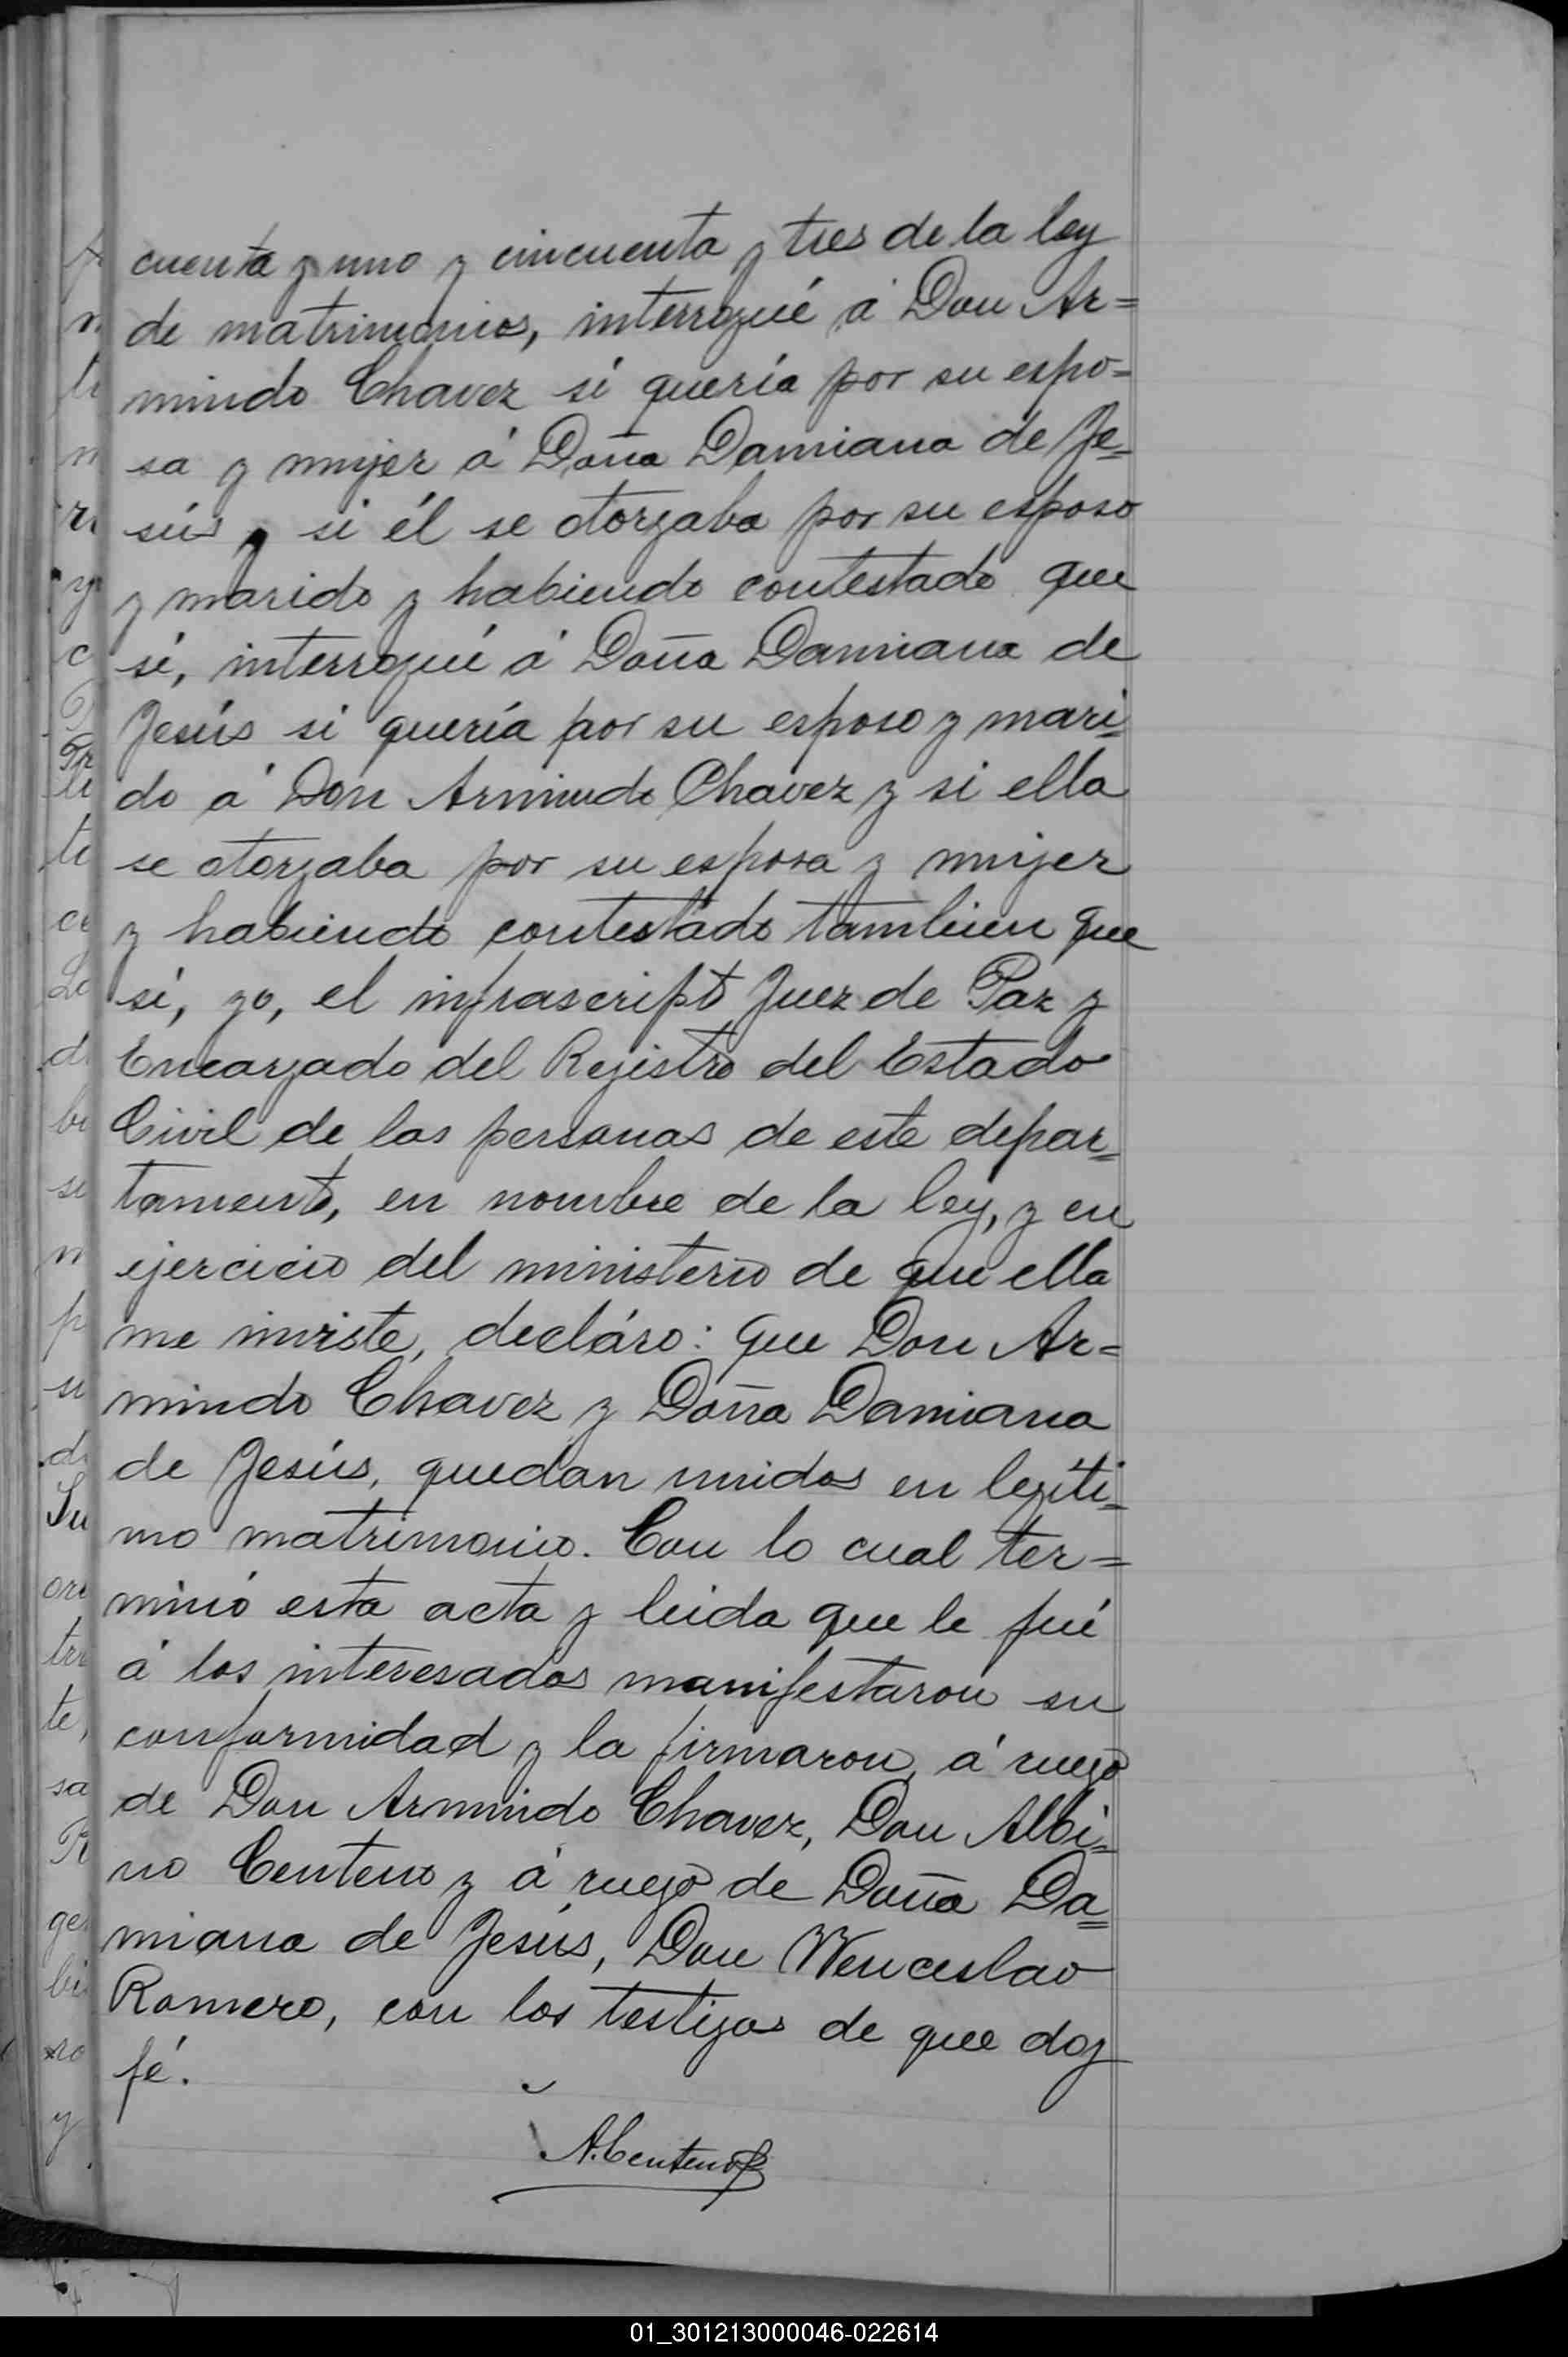 cuenta y uno y cincuenta y tres de la ley
de matrimonios, interrogué á Don Ar=
mindo Chavez si quería por su espo=
sa y mujer á Doña Damiana de Je=
sús y si él se otorgaba por su esposo
y marido y habiendo contestado que
sí, interrogué á Doña Damiana de
Jesús si quería por su esposo y mari=
do á Don Armindo Chavez y si ella
se otorgaba por su esposa y mujer
y habiendo contestado tambien que
sí, yo, el infrascripto Juez de Paz y
Encargado del Registro del Estado
Civil de las personas de este depar=
tamento, en nombre de la ley, y en
ejercicio del ministerio de que ella
me inviste, decláro: que Don Ar=
mindo Chavez y Doña Damiana
de Jesús, quedan unidos en legíti=
mo matrimonio. Con lo cual ter=
minó esta acta y leida que le fué
á los interesados manifestaron su
conformidad y la firmaron, á ruego
de Don Armindo Chavez, Don Albi=
no Centeno y á ruego de Doña Da=
miana de Jesús, Don Wenceslao
Romero, con los testigos de que doy
fé.
A. Centeno
01_301213000046-022614